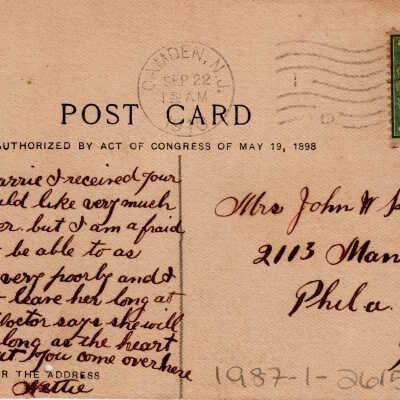 CAMDEN, N.J.
SEP 22
POST CARD
AUTHORIZED BY ACT OF CONGRESS OF MAY 19, 1898
arrie I received your
uld like very much
er. but I am afraid
be able to as
very poorly and I
leave her long at
Doctor says she will
long as the heart
ut you come over here
Nettie
R THE ADDRESS
Mrs John W
2113 Man
Phila.
1987-1-2615